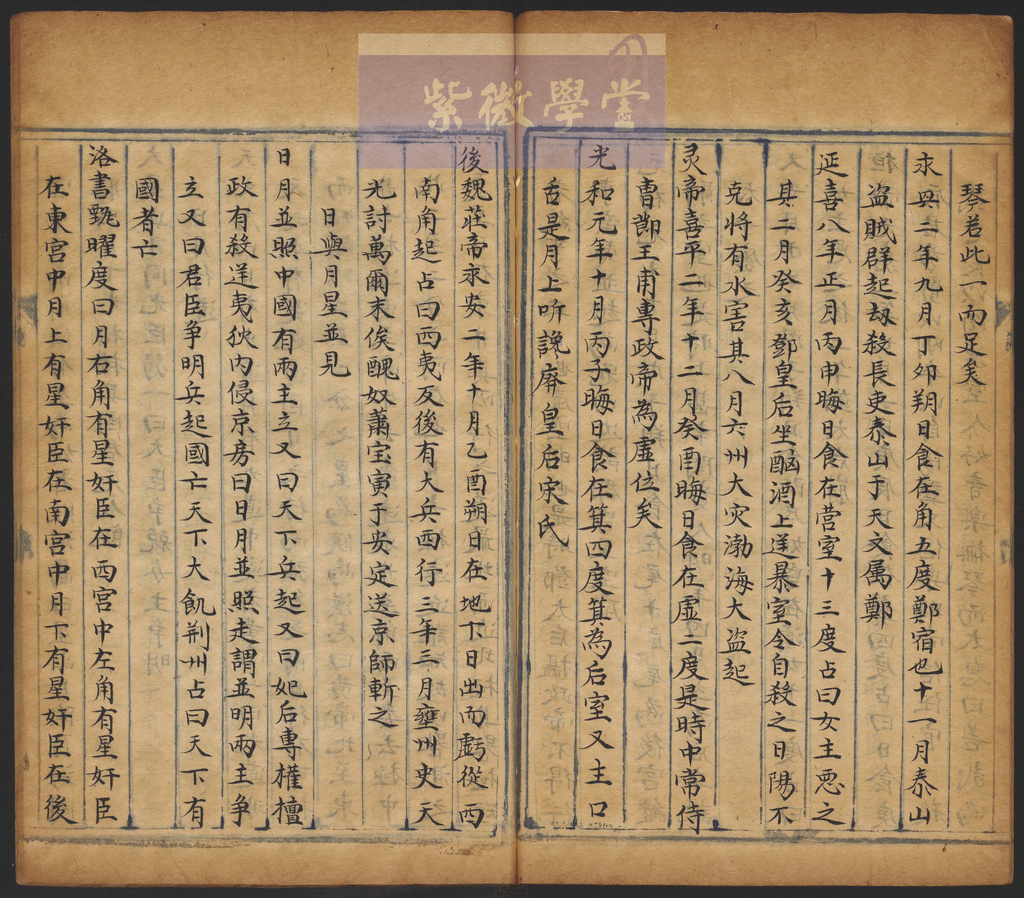 紫微學堂
琴若此一而足矣
永興二年九月丁卯朔日食在角五度鄭宿也十一月泰山
盜賊群起刼殺長吏泰山于天文属鄭
延喜八年正月丙申晦日食在营室十三度占曰女主恶之
其二月癸亥鄧皇后坐酗酒上送暴室令自殺之日陽不
克將有水害其八月六州大灾渤海大盜起
灵帝喜平二年十二月癸酉晦日食在虚二度是時中常侍
曹節王甫專政帝為虚位矣
光和元年十月丙子晦日食在箕四度箕為后室又主口
舌是月上听讒廃皇后宋氏
後魏莊帝永安二年十月乙酉朔日在地下日出而虧從西
南角起占曰西夷反後有大兵西行三年三月雍州史天
光討萬爾末俟醜奴蕭宝寅于安定送京師斬之
日與月星並見
日月並照中國有兩主立又曰天下兵起又曰妃后專權檀
政有殺逆夷狄内侵京房曰日月並照走謂並明兩主争
立又曰君臣争明兵起國亡天下大飢荆州占曰天下有
國者亡
洛書甄曜度曰月右角有星奸臣在西宫中左角有星奸臣
在東宫中月上有星奸臣在南宫中月下有星奸臣在後